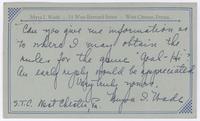 Myra I. Wade   11 West Barnard Street   West Chester, Penna.
Can you give me information as
to where I may obtain the
rules for the game "Goal-Hi"?
An early reply would be appreciated
Very truly yours,
S.T.C. West Chester, Pa. Myra I. Wade